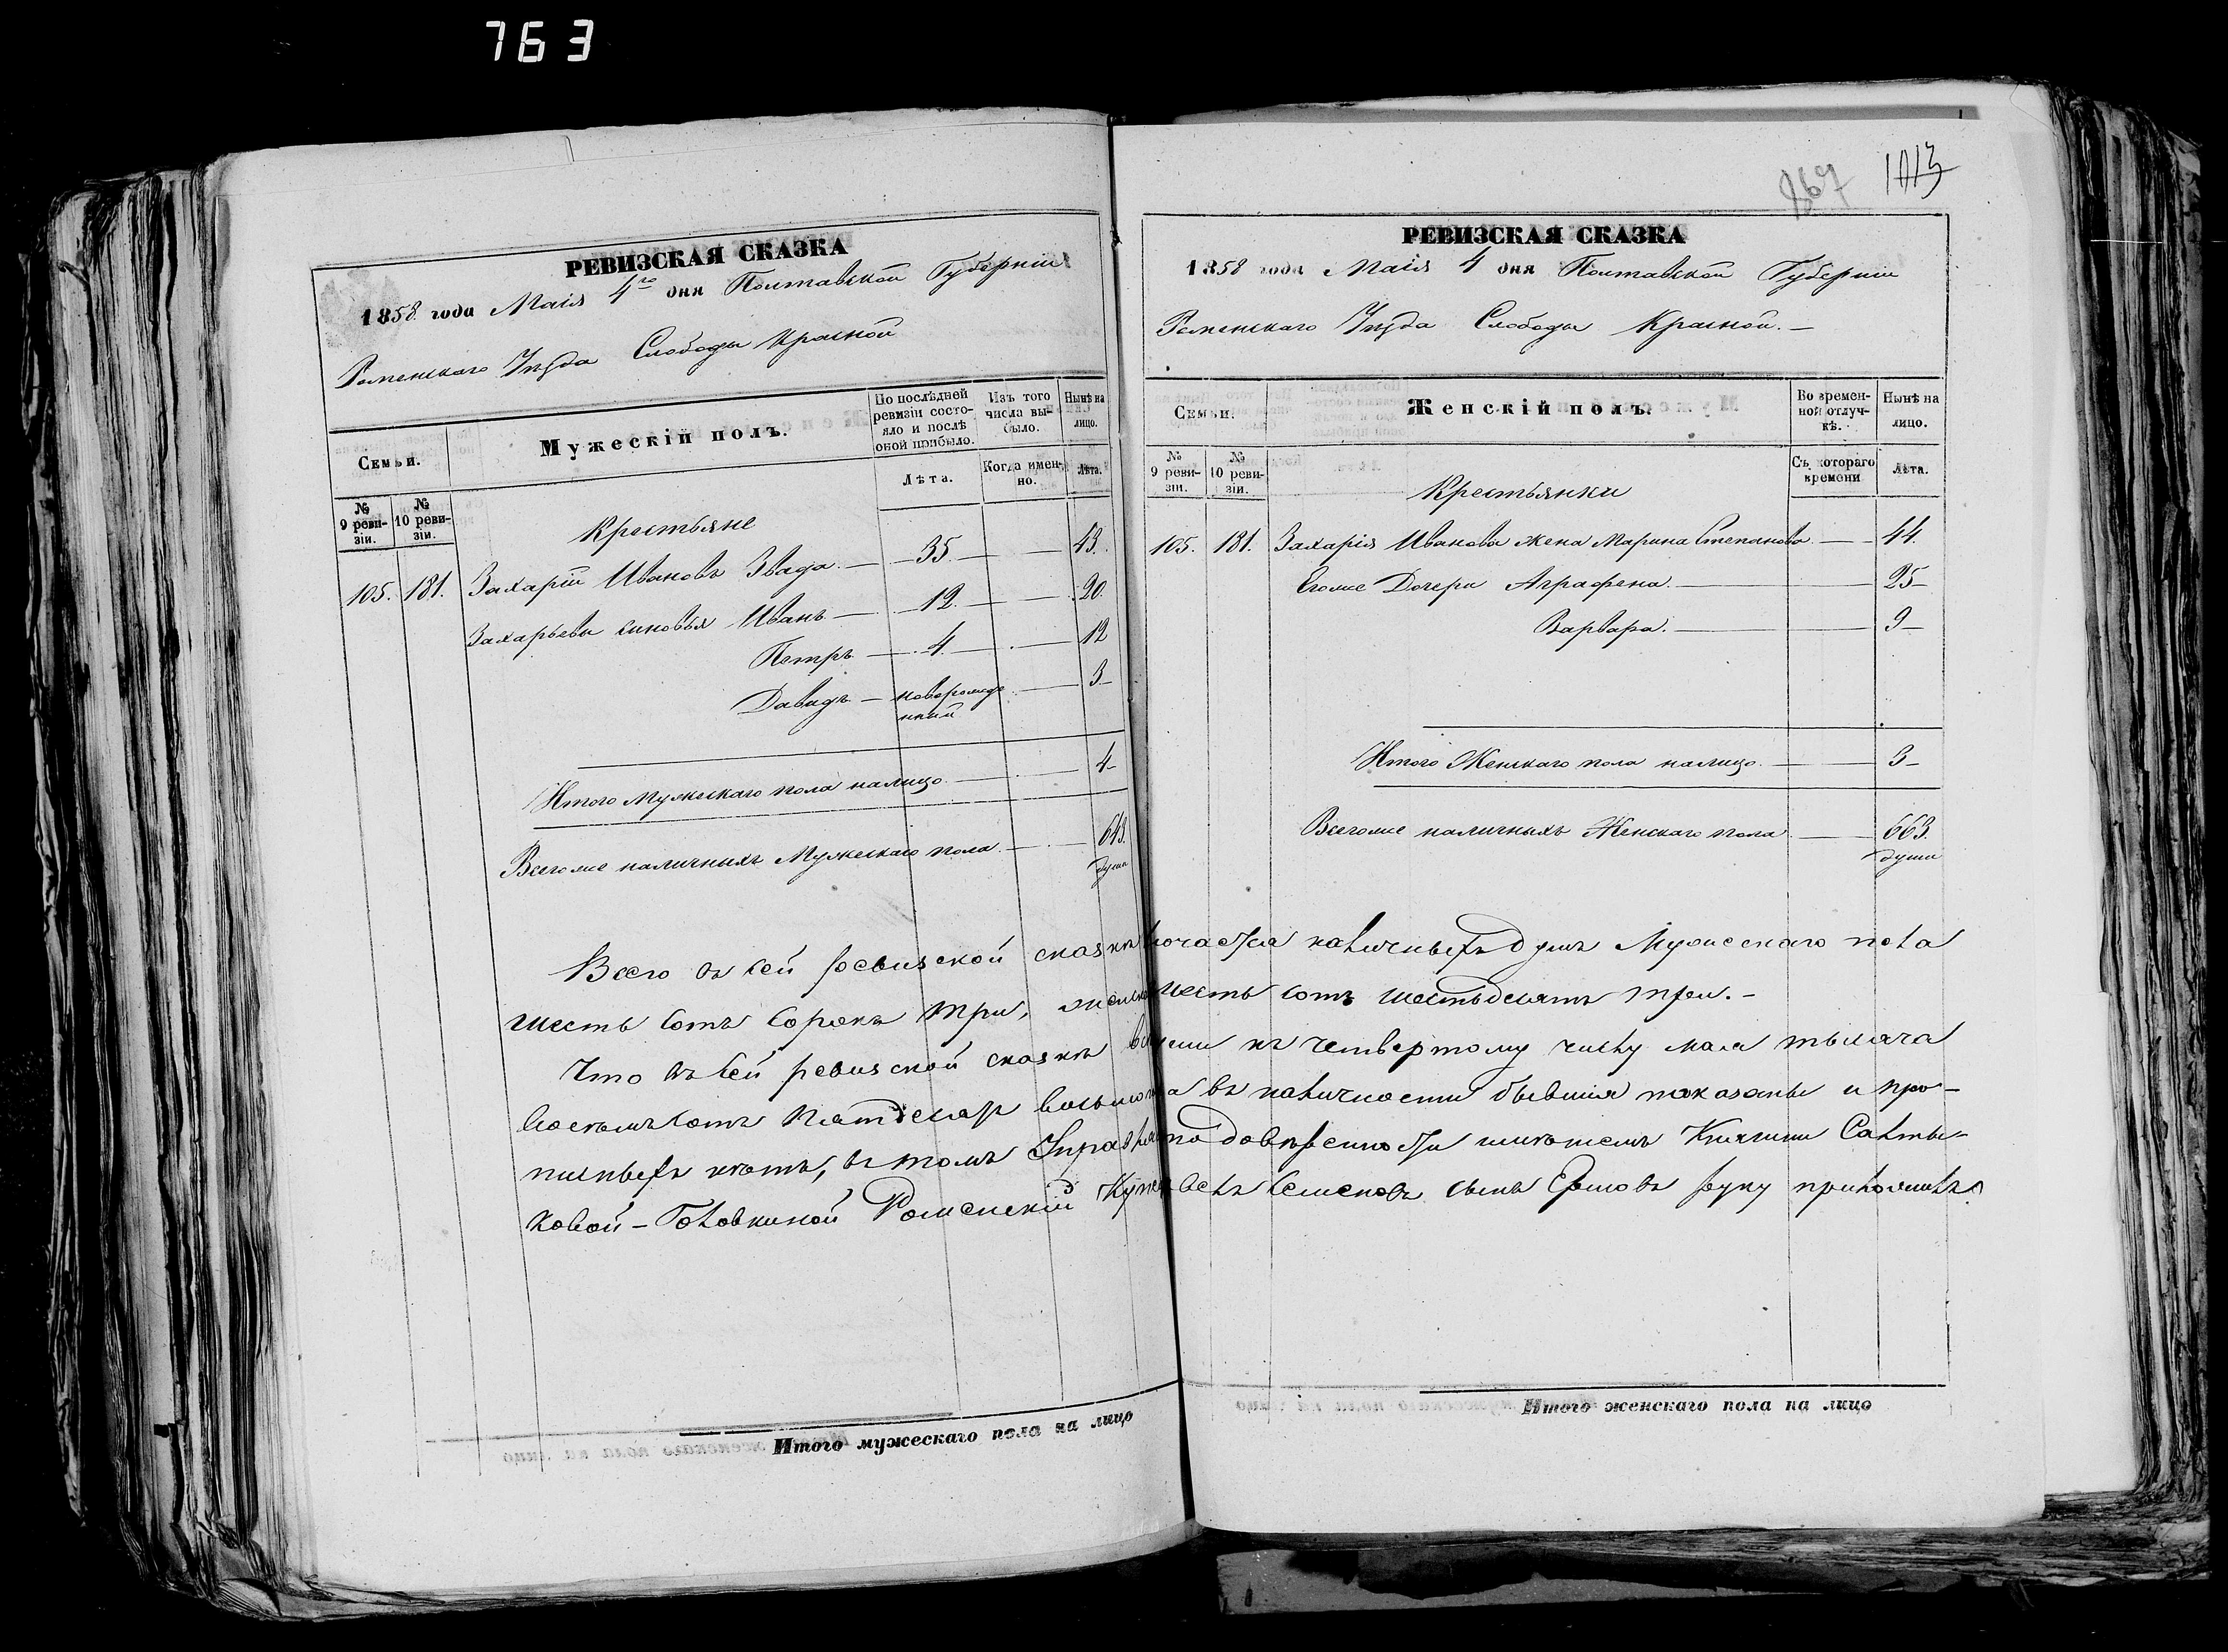 763
РЕВИЗСКАЯ СКАЗКА
1858 года Маія 4го дня Полтавской Губерніи
Роменскаго Уѣзда Слободы Красной
Семьи.
Мужескій полъ.
По послѣдней ревизіи состояло и послѣ оной прибыло.
Изъ того числа выбыло.
Нынѣ на лицо.
№ 9 ревизіи.
№ 10 ревизіи.
Лѣта.
Когда именно.
Лѣта.
Крестьяне
105. 181. Захарій Ивановъ Звада — 35 — 43.
Захарьевы сыновья Иванъ — 12. — 20.
Петръ — 4. — 12
Давидъ — новорожденный — 3
Итого Мужескаго пола налицо — 4
Всегоже наличныхъ Мужескаго пола — 643.
души
Итого мужескаго пола на лицо
867 1013
РЕВИЗСКАЯ СКАЗКА
1858 года Маія 4 дня Полтавской Губерніи
Роменскаго Уѣзда Слободы Красной. —
Семьи.
Женскій полъ.
Во временной отлучкѣ.
Нынѣ на лицо.
№ 9 ревизіи.
№ 10 ревизіи.
Съ котораго времени
Лѣта.
Крестьянки
105. 181. Захарія Иванова жена Марина Степанова — 44.
Егоже Дочери Аграфена — 25
Варвара. — 9
Итого Женскаго пола налицо — 3
Всегоже наличныхъ Женскаго пола — 663.
души
Всего въ сей ревизской сказкѣ наличныхъ душъ Мужескаго пола
шесть сотъ сорокъ три, шесть сотъ шестьдесятъ три. —
Что въ сей ревизской сказкѣ всѣ души къ четвертому числу мая тысяча
восемьсотъ пятдесят восьмого в наличности бывшія показаны и про-
писныхъ нѣтъ, въ томъ по довѣренности Княгини Салты-
ковой-Головкиной Роменскій Купец Семеновъ сынъ Ершовъ руку приложилъ.
Итого женскаго пола на лицо